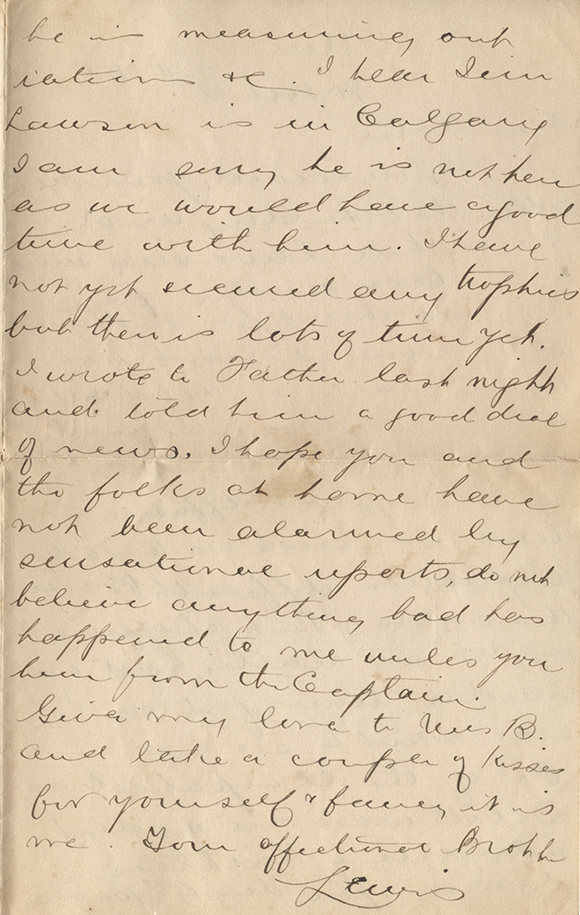 he is measuring out
rations &c. I hear Jim
Lawson is in Calgary
I am sorry he is not here
as we would have a good
time with him. I have
not yet secured any trophies
but there is lots of time yet.
I wrote to Father last night
and told him a good deal
of news. I hope you and
the folks at home have
not been alarmed by
sensational reports, do not
believe anything bad has
happened to me unless you
hear from the Captain.
Give my love to Mrs B.
and take a couple of kisses
for yourself & fancy it is
me. Your affectionate Brother
Lewis